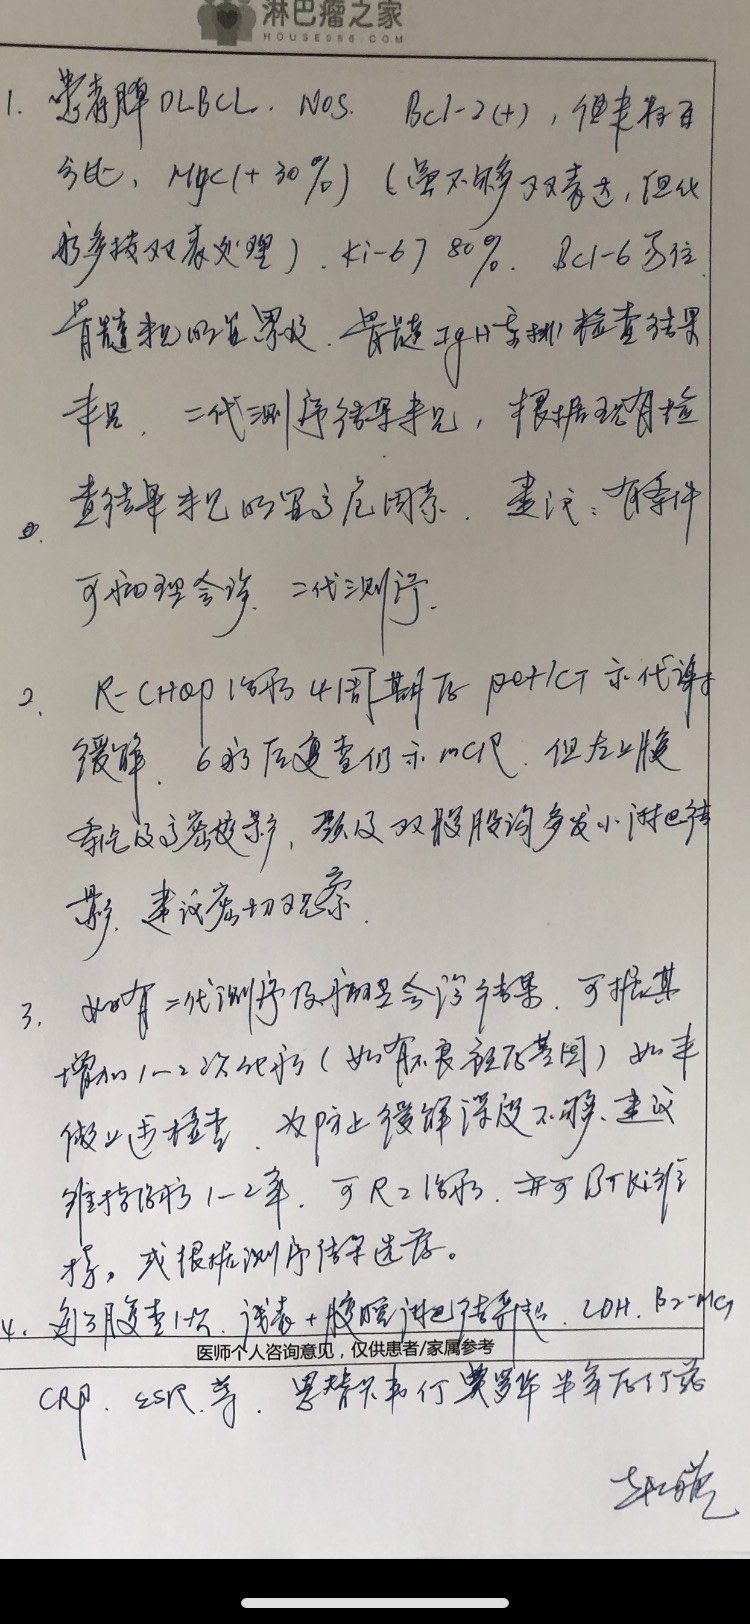 淋巴瘤之家
HOUSE086.COM
1. 患者脾DLBCL. NOS. Bcl-2(+), 但未标百
分比, Myc(+30%) (虽不够双表达, 但化
疗多按双表处理). Ki-67 80%. Bcl-6易位.
骨髓未见明显累及. 骨髓IgH重排检查结果
未见. 二代测序结果未见, 根据现有检
查结果未见明显高危因素. 建议: 有条件
可病理会诊. 二代测序.
2. R-CHOP治疗4周期后pet/CT示代谢
缓解. 6疗后复查仍示mCR. 但左上腹
及高密度影, 颈及双腹股沟多发小淋巴结
影. 建议密切观察.
3. 如有二代测序及病理会诊结果. 可据其
增加1-2次化疗(如有不良预后基因) 如未
做上述检查. 为防止缓解深度不够. 建议
维持治疗1-2年. 可R2治疗. 亦可BTKi维
持。或根据测序结果选择。
4. 每3月复查1次. 浅表+腹腔淋巴结彩超. LDH. B2-MG
医师个人咨询意见，仅供患者/家属参考
CRP. ESR. 等. 恩替卡韦停美罗华半年后停药